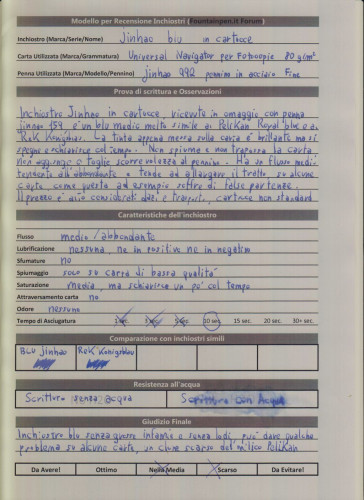 Modello per Recensione Inchiostri (Fountainpen.it Forum)
Inchiostro (Marca/Serie/Nome) Jinhao blu in cartucce
Carta Utilizzata (Marca/Grammatura) Universal Navigator per Fotocopie 80 g/m²
Penna Utilizzata (Marca/Modello/Pennino) Jinhao 992 pennino in acciaio Fine
Prova di scrittura e Osservazioni
Inchiostro Jinhao in cartucce, ricevute in omaggio con penna
Jinhao 159 è un blu medio molto simile al Pelikan Royal blue o al
R&K Konigblau. La tinta appena messa sulla carta è brillante ma si
spegne e schiarisce col tempo. Non spiuma e non trapassa la carta
non aggiunge o toglie scorrevolezza al pennino. Ha un flusso medio
tendente all'abbondante e tende ad allargare il tratto, su alcune
carte come questa ad esempio soffre di false partenze.
Il prezzo è alto considerati dazi e trasporto, cartucce non standard
Caratteristiche dell'inchiostro
Flusso medio/abbondante
Lubrificazione nessuna, ne in positivo ne in negativo
Sfumature no
Spiumaggio solo su carta di bassa qualità
Saturazione media, ma schiarisce un po' col tempo
Attraversamento carta no
Odore nessuno
Tempo di Asciugatura 1 sec. 3 sec. 5 sec. 10 sec. 15 sec. 20 sec. 30+ sec.
Comparazione con inchiostri simili
BLU Jinhao R&K Konigblau
Resistenza all'acqua
Scrittura senza acqua Scrittura con Acqua
Giudizio Finale
Inchiostro blu senza grosse infamie e senza lodi, può dare qualche
problema su alcune carte, un clone scarso del mitico Pelikan
Da Avere! Ottimo Nella Media Scarso Da Evitare!